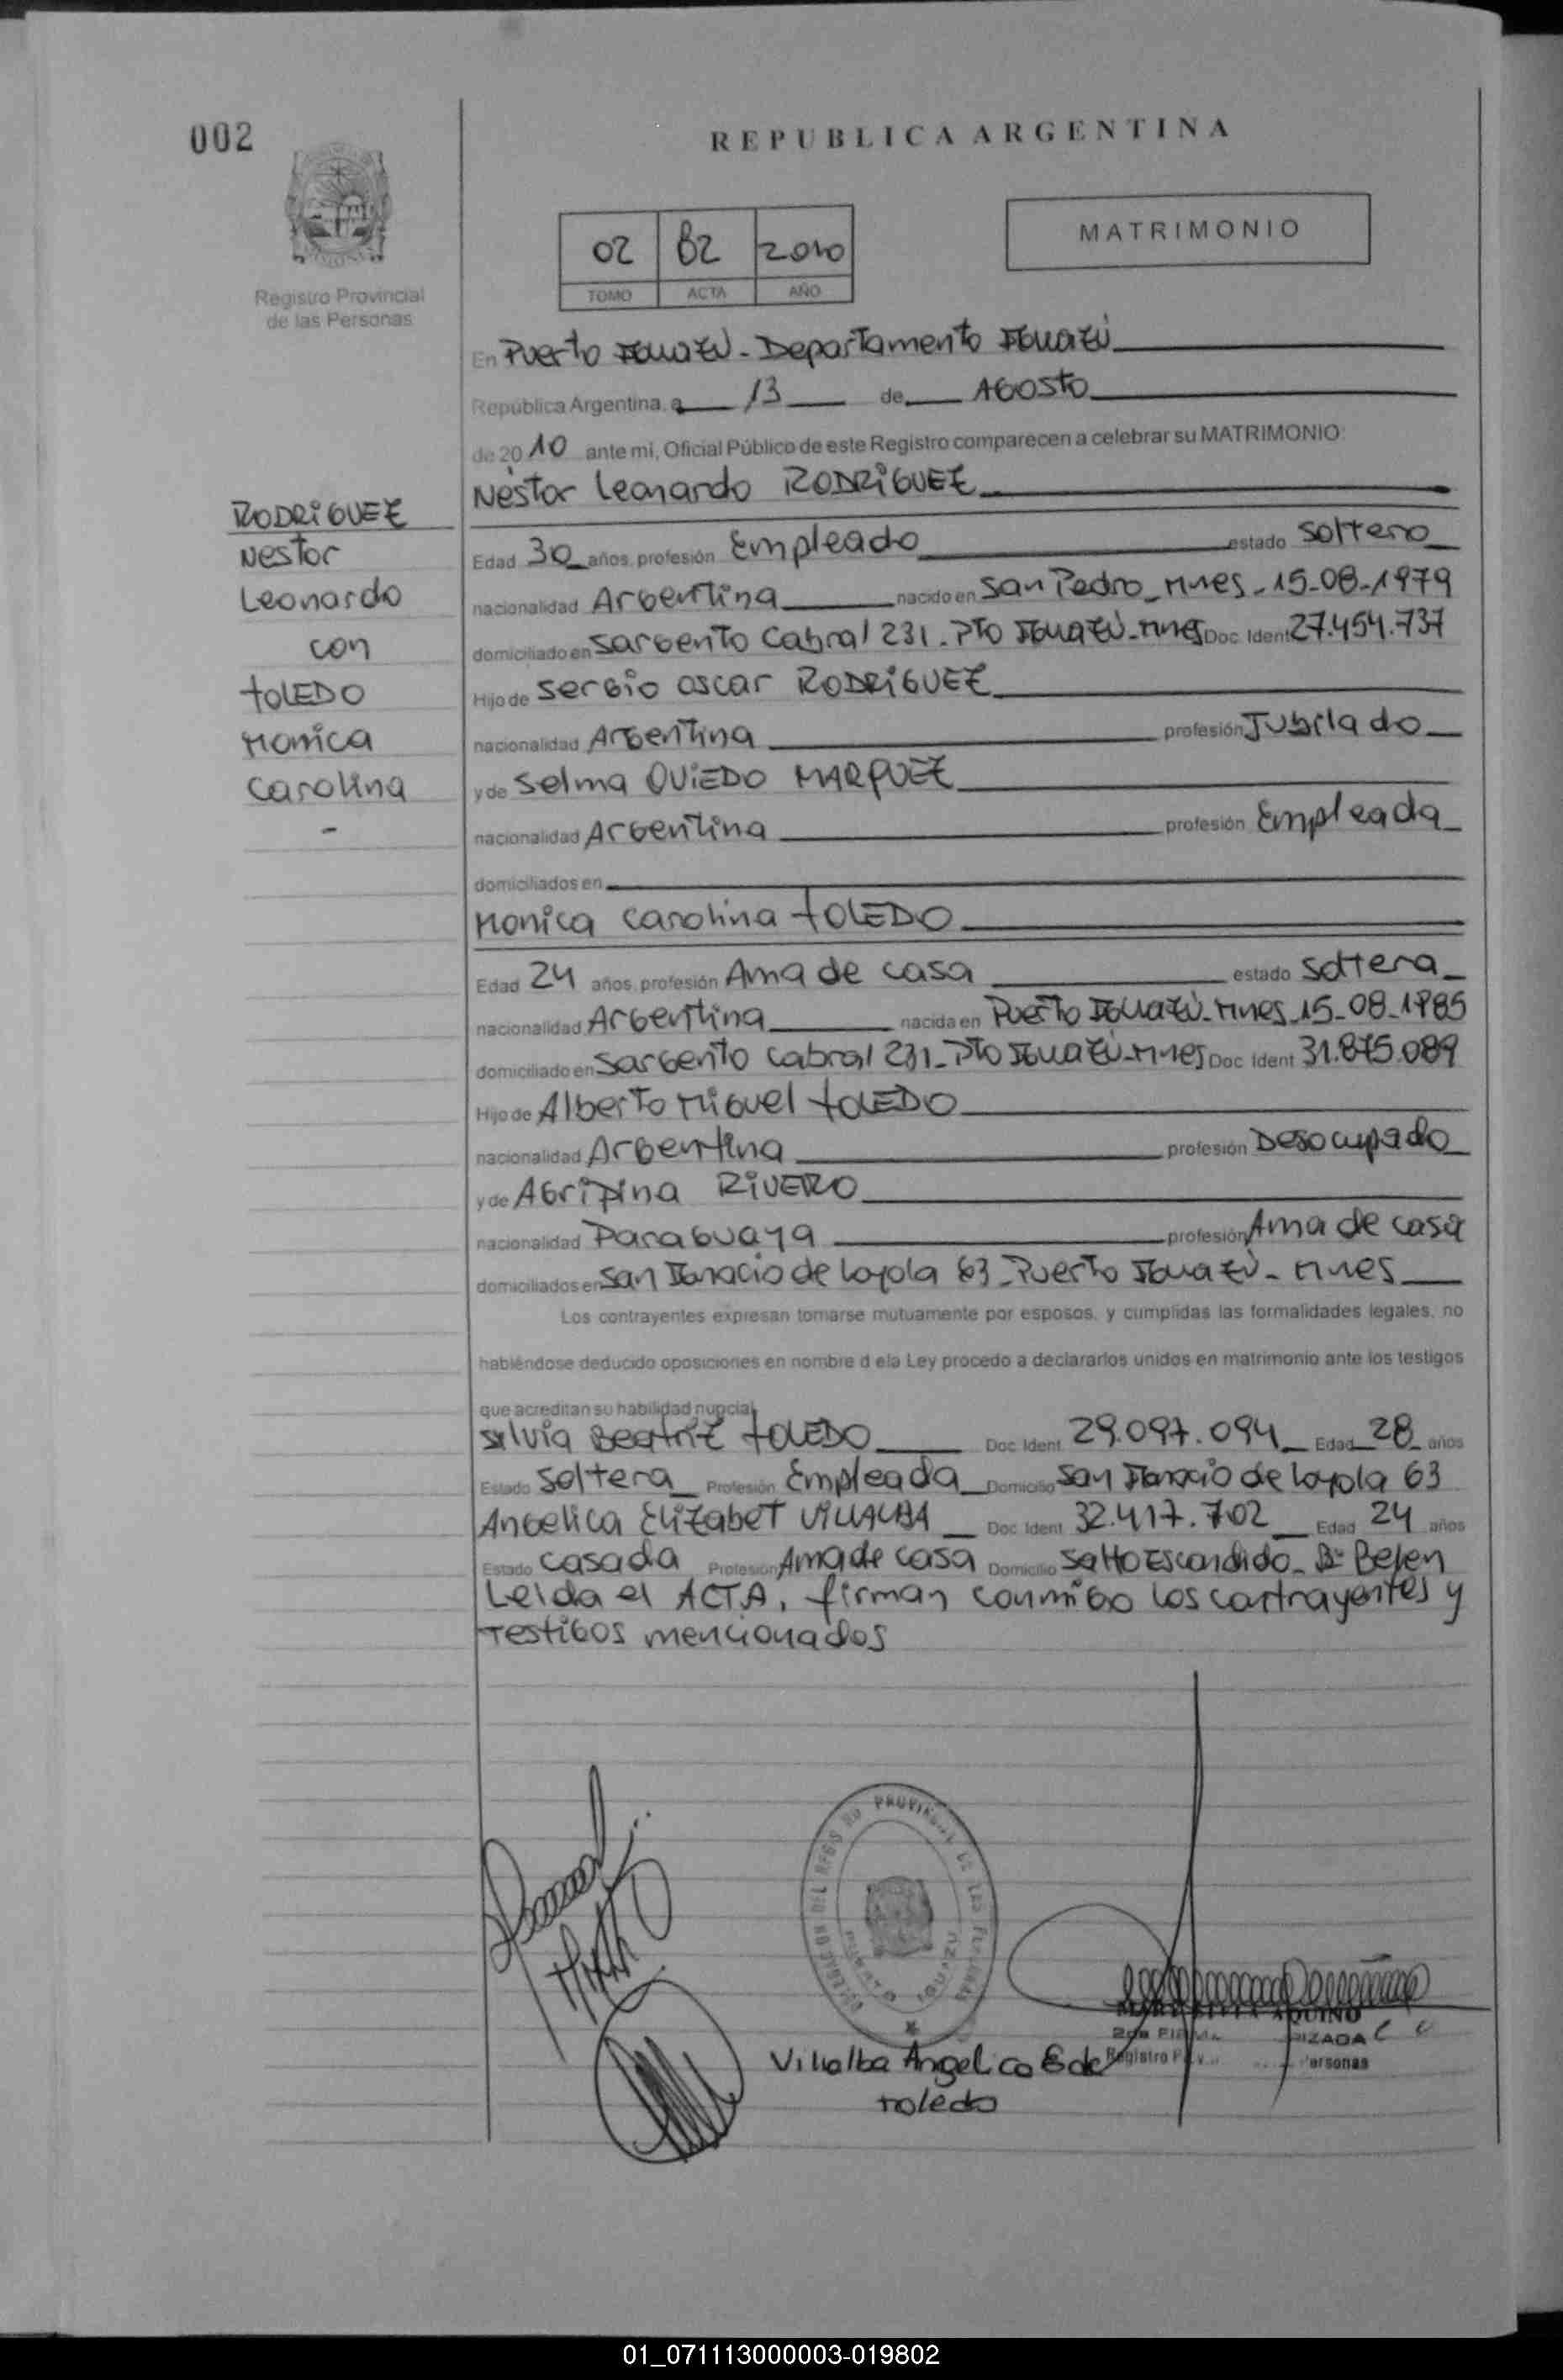 002
REPUBLICA ARGENTINA
Registro Provincial
de las Personas
02 82 2010
TOMO ACTA AÑO
MATRIMONIO
En Puerto Iguazú - Departamento Iguazú
República Argentina, a 13 de AGOSTO
de 2010 ante mi, Oficial Público de este Registro comparecen a celebrar su MATRIMONIO:
RODRIGUEZ
Nestor
Leonardo
con
TOLEDO
Monica
Carolina
-
Nestor Leonardo RODRIGUEZ
Edad 30 años, profesión Empleado estado Soltero
nacionalidad Argentina nacido en San Pedro - Mnes - 15-08-1979
domiciliado en Sargento Cabral 231 - Pto Iguazú - Mnes Doc. Ident 27.454.737
Hijo de Sergio Oscar RODRIGUEZ
nacionalidad Argentina profesión Jubilado
y de Selma OVIEDO MARQUEZ
nacionalidad Argentina profesión Empleada
domiciliados en
Monica Carolina TOLEDO
Edad 24 años, profesión Ama de casa estado Soltera
nacionalidad Argentina nacida en Puerto Iguazú - Mnes - 15-08-1985
domiciliado en Sargento Cabral 231 - Pto Iguazú - Mnes Doc. Ident 31.875.089
Hijo de Alberto Miguel TOLEDO
nacionalidad Argentina profesión Desocupado
y de Agripina RIVERO
nacionalidad Paraguaya profesión Ama de casa
domiciliados en San Ignacio de Loyola 63 - Puerto Iguazú - Mnes
Los contrayentes expresan tomarse mutuamente por esposos, y cumplidas las formalidades legales, no
habiéndose deducido oposiciones en nombre d ela Ley procedo a declararlos unidos en matrimonio ante los testigos
que acreditan su habilidad nupcial
Silvia Beatriz TOLEDO Doc. Ident. 29.097.094 Edad 28 años
Estado Soltera Profesión Empleada Domicilio San Ignacio de Loyola 63
Angelica Elizabet VILLALBA Doc. Ident. 32.417.702 Edad 24 años
Estado Casada Profesión Ama de casa Domicilio Salto Escondido - Bº Belen
Leida el ACTA, firman conmigo los contrayentes y
testigos mencionados
DELEGACION DEL REGISTRO PROVINCIAL DE LAS PERSONAS
PUERTO IGUAZU
AQUINO
Registro
Personas
Villalba Angelica E de
Toledo
01_071113000003-019802